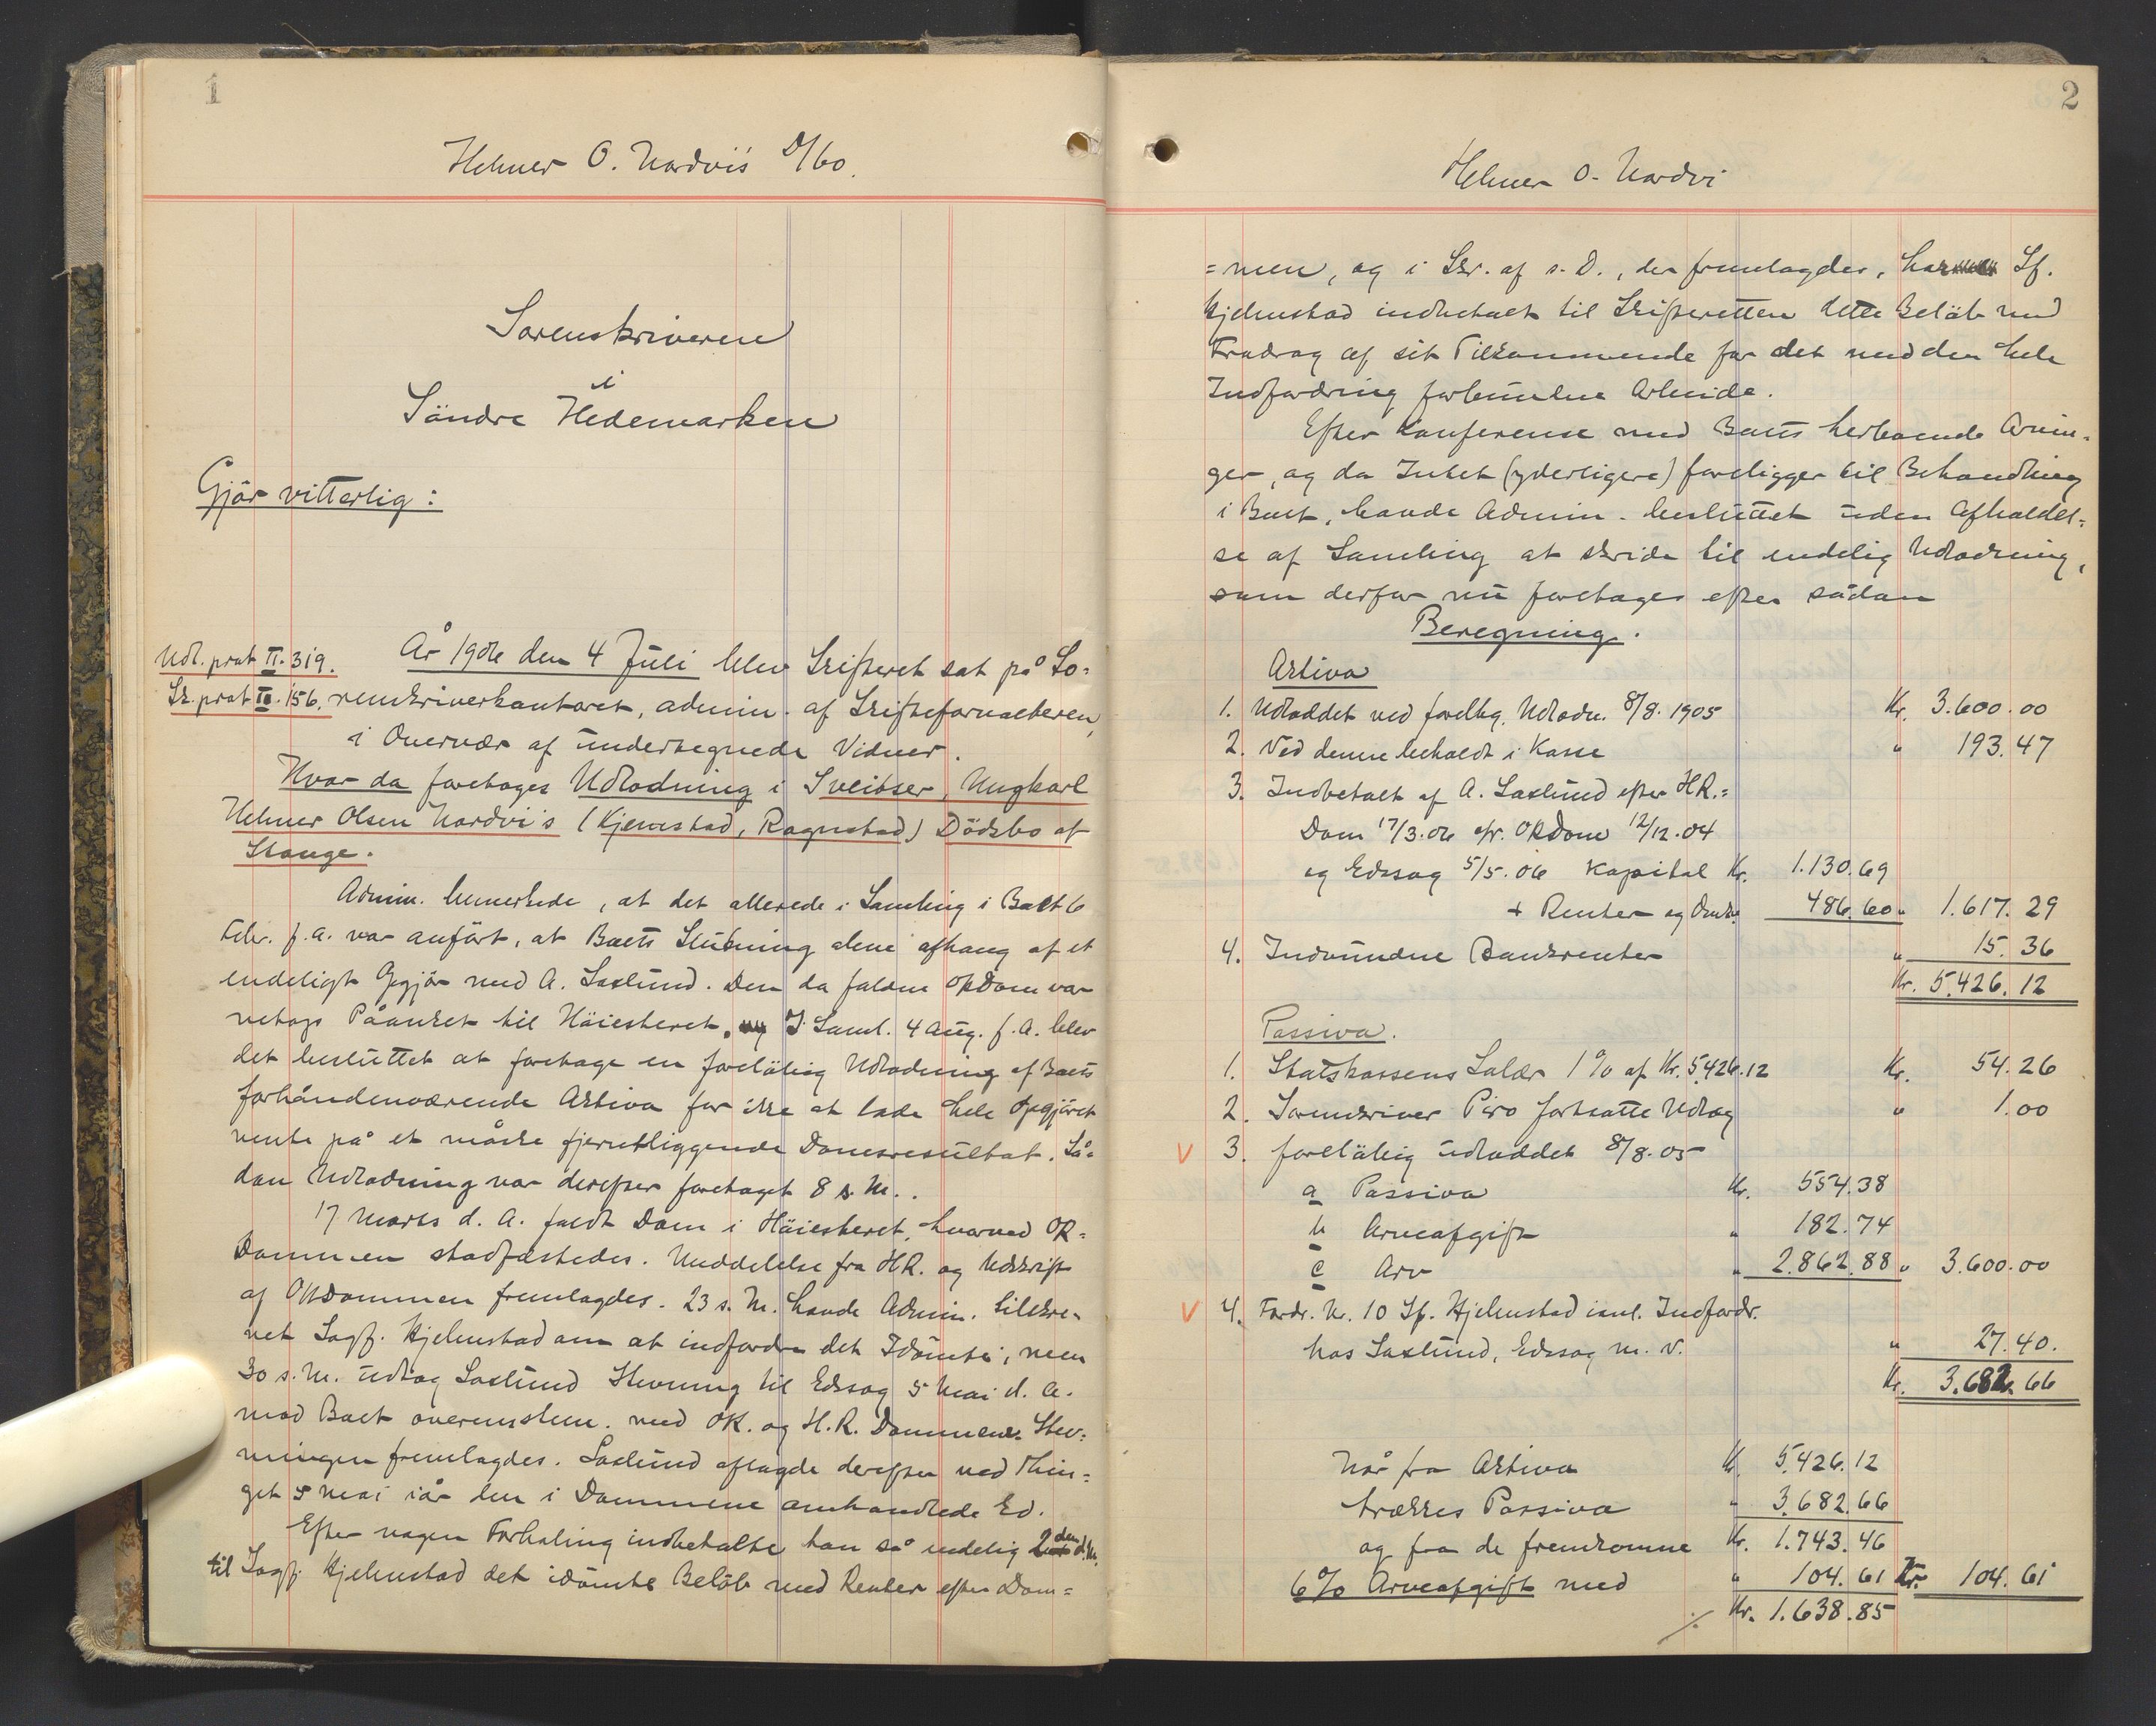 1
Helmer O. Nordvi's D/bo.
Sorenskriveren
i
Söndre Hedemarken
Gjör vitterlig:
Udl. prot II. 319.
Sk. prot III. 156.
År 1906 den 4 Juli blev Skifteret sat på So=
renskriverkontoret, admin. af Skifteforvalteren,
i Overvær af undertegnede Vidner.
Hvor da foretoges Udlodning i Sveitser, Ungkarl
Helmer Olsen Nordvi's (Kjemstad, Ragnstad) Dödsbo af
Stange.
Admin. bemerkede, at det allerede i Samling i Boet 6
Febr. f.a. var anfört, at Boets Slutning alene afhang af et
endeligt Opgjör med A. Saxlund. Den da faldne OKDom var
netop Påanket til Höiesteret. I Saml. 4 Aug. f.A. blev
det besluttet at foretage en forelöbig Udlodning af Boets
forhåndenværende Aktiva for ikke at lade hele Opgjöret
vente på et måske fjerntliggende Domsresultat. Så=
dan Udlodning var derefter foretaget 8 s. M..
17 Marts d. A. faldt Dom i Höiesteret, hvorved OK=
Dommen stadfæstedes. Meddelelse fra HR. og Udskrift
af OKDommen fremlagdes. 23 s. M. havde Admin. tilskre=
vet Sagf. Hjelmstad om at indfordre det Idömte, men
30 s. M. udtog Saxlund Stevning til Edssag 5 Mai d. A.
mod Boet overensstem. med OK. og H.R. Dommene. Stev=
ningen fremlagdes. Saxlund aflagde derefter ved Thin=
get 5 Mai iår den i Dommene omhandlede Ed.
Efter nogen Forhaling indbetalte han så endelig 2den d.M.
til Sagf. Hjelmstad det idömte Belöb med Renter efter Dom=
2
Helmer O. Nordvi
=men, og i Skr. af s. D., der fremlagdes, har Sf.
Hjelmstad indbetalt til Skifteretten dette Belöb med
Fradrag af sit Tilkommende for det med den hele
Indfordring forbundne Arbeide.
Efter Konferense med Boets herboende Arvin=
ger, og da Intet (yderligere) foreligger til Behandling
i Boet, havde Admin. besluttet uden Afholdel=
se af Samling at skride til endelig Udlodning,
som derfor nu foretages efter sådan
Beregning.
Aktiva
1. Udloddet ved forelbg. Udlodn. 8/8. 1905 Kr. 3.600.00
2. Ved denne beholdt i Kasse " 193.47
3. Indbetalt af A. Saxlund efter HR.=
Dom 17/3.06 cfr. OKDom 12/12.04
og Edssag 5/5.06 Kapital Kr. 1.130.69
+ Renter og Omk. 486.60 " 1.617.29
4. Indvundne Bankrenter " 15.36
Kr. 5.426.12
Passiva.
1. Statskassens Salær 1% af Kr. 5.426.12 Kr. 54.26
2. Sorenskriver Piro fortsatte Udlæg " 1.00
V 3. forelöbig udloddet 8/8.05
a Passiva Kr. 554.38
b Arveafgift " 182.74
c Arv " 2.862.88 " 3.600.00
V 4. Fordr. Nr. 10 Sf. Hjelmstad isml. Indfordr.
hos Saxlund, Edssag m. v. " 27.40.
Kr. 3.682.66
Når fra Aktiva Kr. 5.426.12
trækkes Passiva " 3.682.66
og fra de fremkomne Kr. 1.743.46
6% Arveafgift med " 104.61 Kr. 104.61
./. Kr. 1.638.85